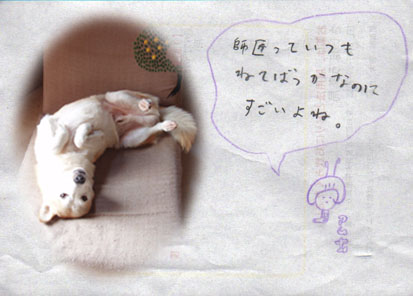 師匠っていつも
ねてばっかなのに
すごいよね。